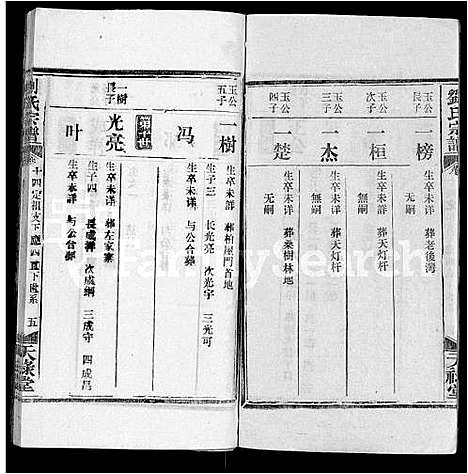 劉氏宗譜
玉公長子
一榜
生卒未詳 葬老後灣
無嗣
玉公次子
一桓
生卒未詳 葬天灯杆
無嗣
玉公三子
一杰
生卒未詳 葬天灯杆
無嗣
玉公四子
一楚
生卒未詳 葬桑樹林地
無嗣
天祿堂
玉公五子
一樹
生卒未詳 葬柏屋門首地
冯
生子三 長光亮 次光宇 三光可
生卒未詳 与公合葬
一樹長子
光亮
生卒未详 葬左家寨
叶
生子四 長成 次成綱 三成守 四成昌
生卒未詳 与公合葬
劉氏宗譜
五
天祿堂